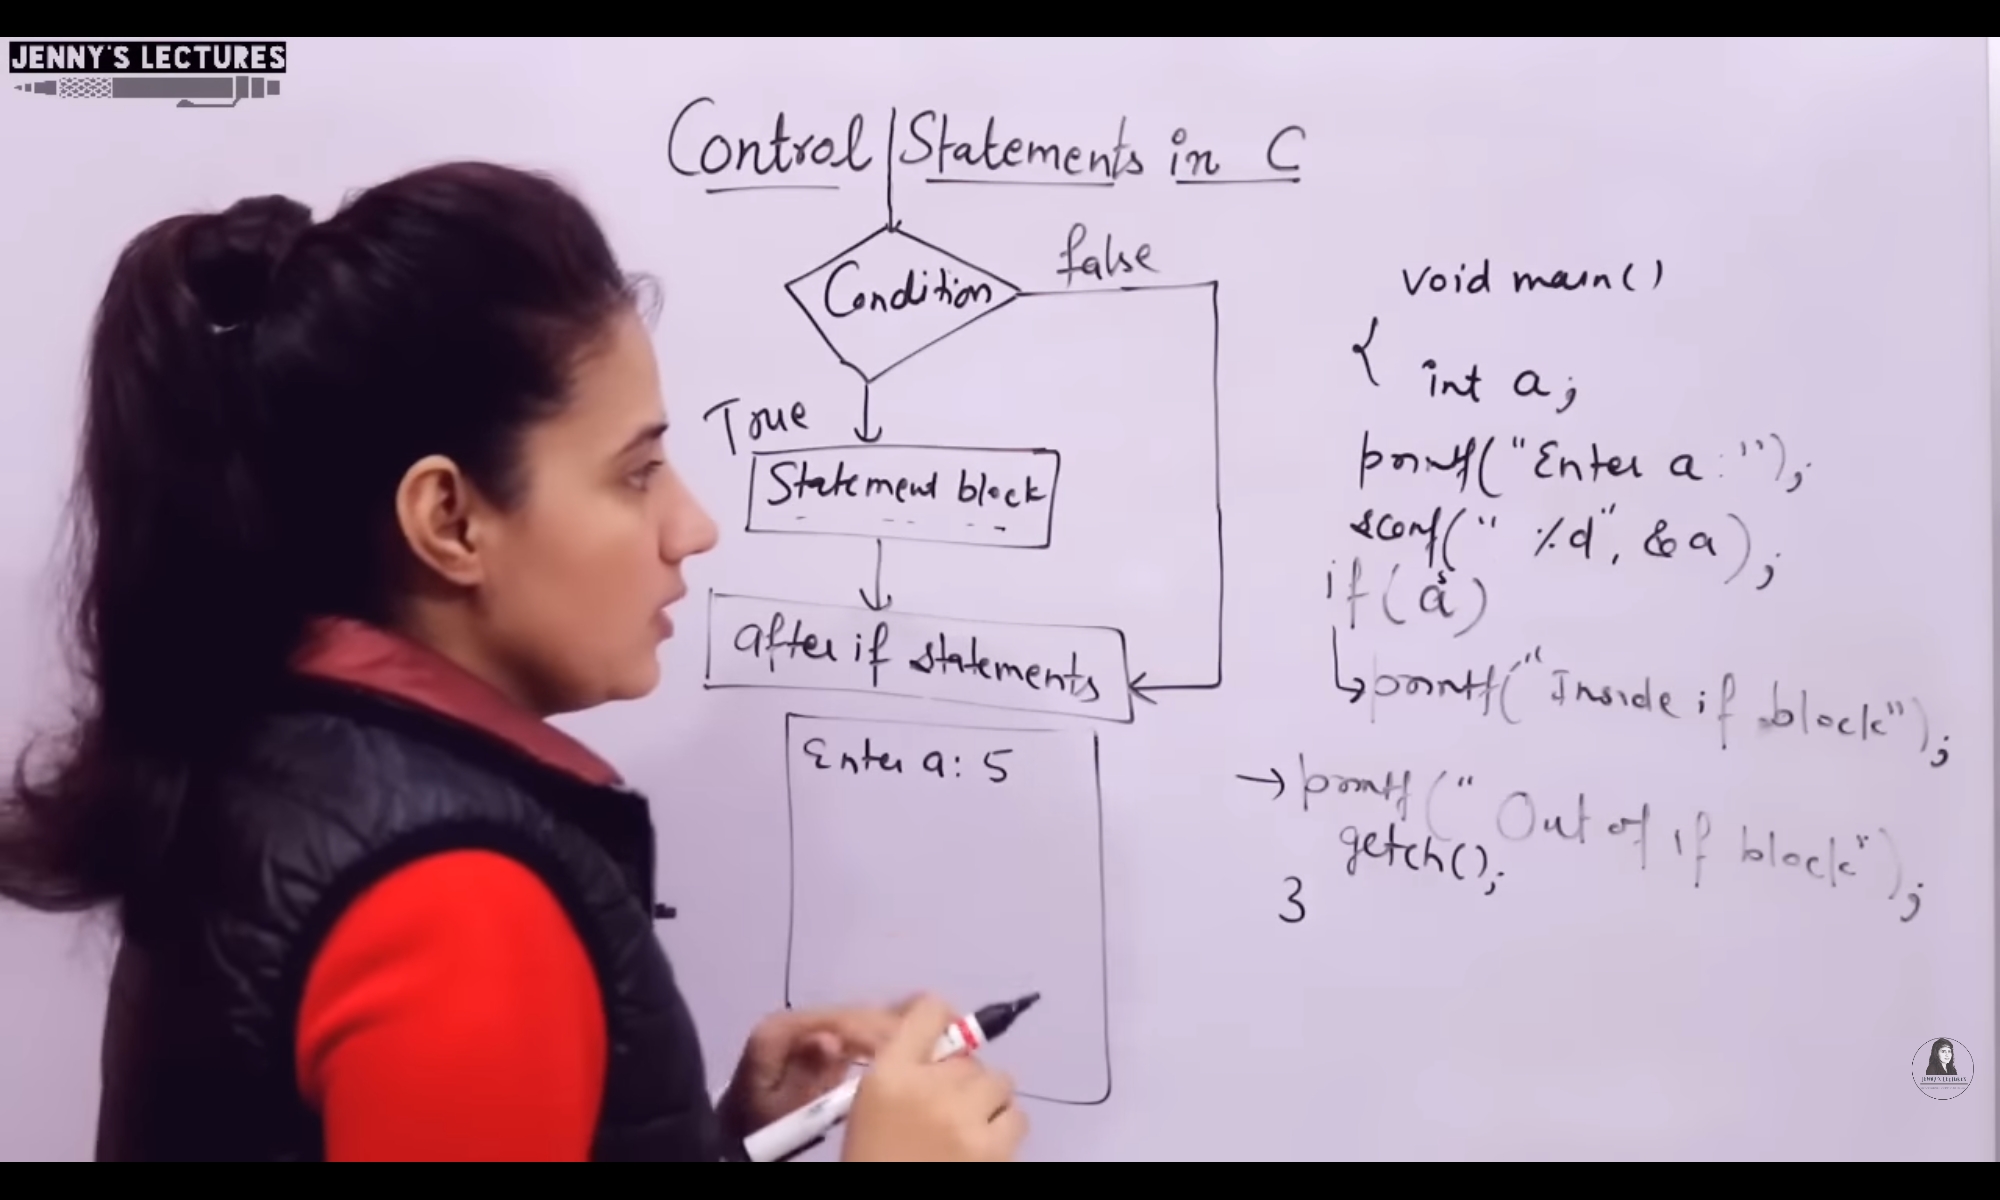 JENNY'S LECTURES
Control Statements in C
Condition
false
True
Statement block
after if statements
Enter a: 5
void main()
{
int a;
printf("Enter a:");
scanf("%d", &a);
if(a)
5
printf("Inside if block");
printf("Out of if block");
getch();
}
JENNY'S LECTURES